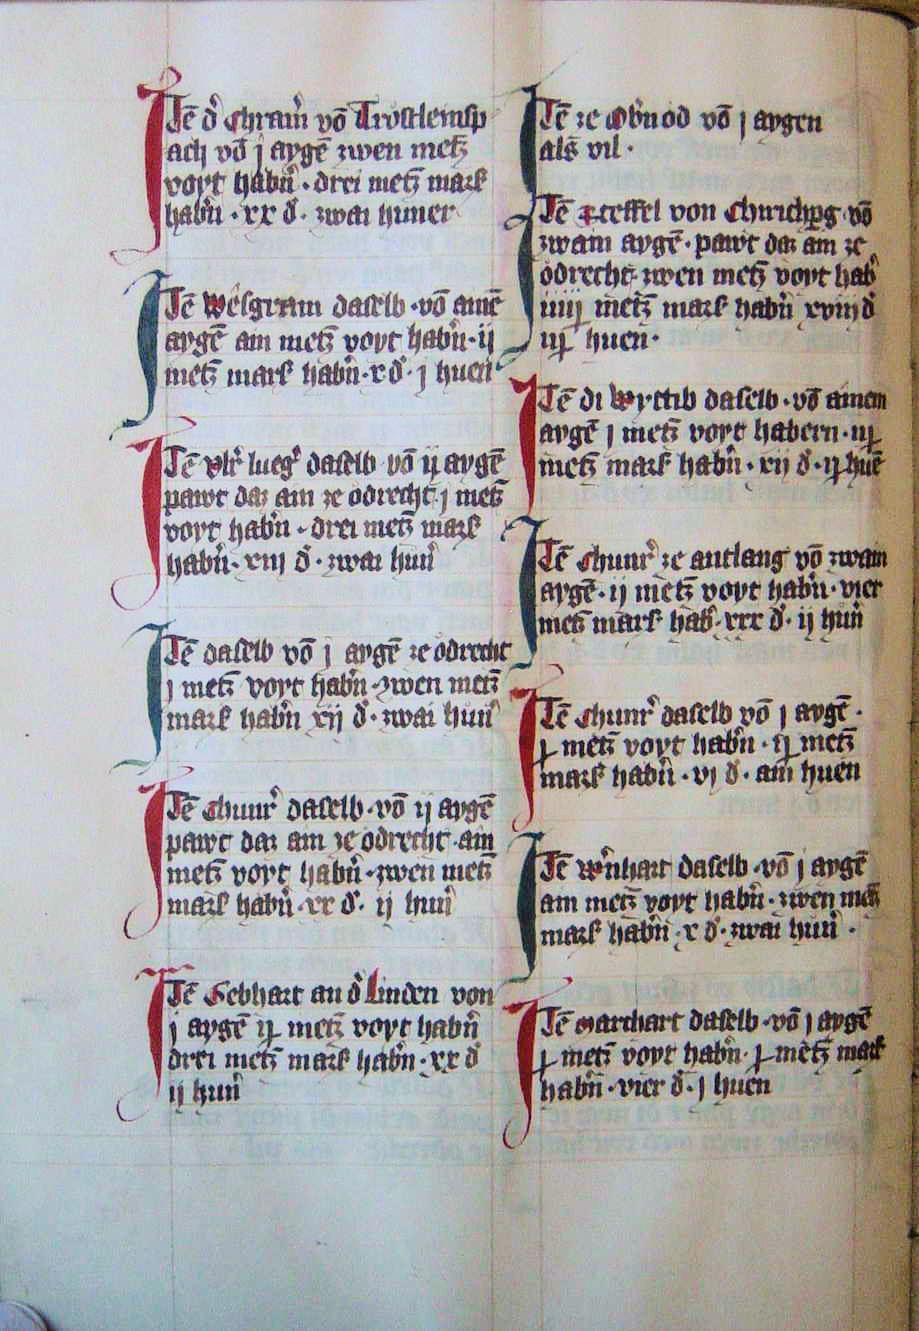 Itē d᷑ Chram᷑ vō Trostlemsp
ach vō j aygē zwen metz
voyt habn̄ · drei metz mark
habn̄ · xx d᷑ · zwai huner
Itē Welgram daselb · vō ainē
aygē ain metz voyt habn̄ · ij
metz mark habn̄ · x d᷑ · j huen
Itē Vlr᷑ lueg᷑ daselb vō ij aygē
pawt daz am ze odrecht j metz
voyt habn̄ · drei metz mark
habn̄ · xiij d᷑ · zwai hun᷑
Itē daselb vō j aygē ze odrecht
j metz voyt habn̄ · zwen metz
mark habn̄ xij d᷑ · zwai hun᷑
Itē Chunr᷑ daselb · vō ij aygē
pawt daz am ze odrecht · ain
metz voyt habn̄ · zwen metz
mark habn̄ · xx d᷑ · ij hun᷑
Itē Gebhart an d᷑ Linden von
j aygē ij metz voyt habn̄
drei metz mark habn̄ · xx d᷑
ij hun᷑
Itē ze Obn̄od vō j aygen
als vil ·
Itē von Chirichpg · vō
zwain aygē · pawt daz am ze
odrecht · zwen metz voyt hab᷑
iiij metz mark habn̄ xviij d᷑
huen ·
Itē di Wyttib daselb · vō ainem
aygē j metz voyt habern ·
metz mark habn̄ · xij d᷑ · huē
Itē Chunr᷑ ze antlang vō zwain
aygē · ij metz voyt habn̄ · vier
metz mark hab᷑ · xxx d᷑ · ij hun᷑
Itē Chunr᷑ daselb vō j aygē ·
metz voyt habn̄ · metz
mark habn̄ · vj d᷑ · ain huen
Itē Wn᷑hart daselb · vō j aygē
ain metz voyt habn̄ · zwen metz
mark habn̄ · x d᷑ · zwai hun᷑ ·
Itē Marchart daselb · vō j aygē
metz voyt habn̄ · metz mark
habn̄ · vier d᷑ · j huen